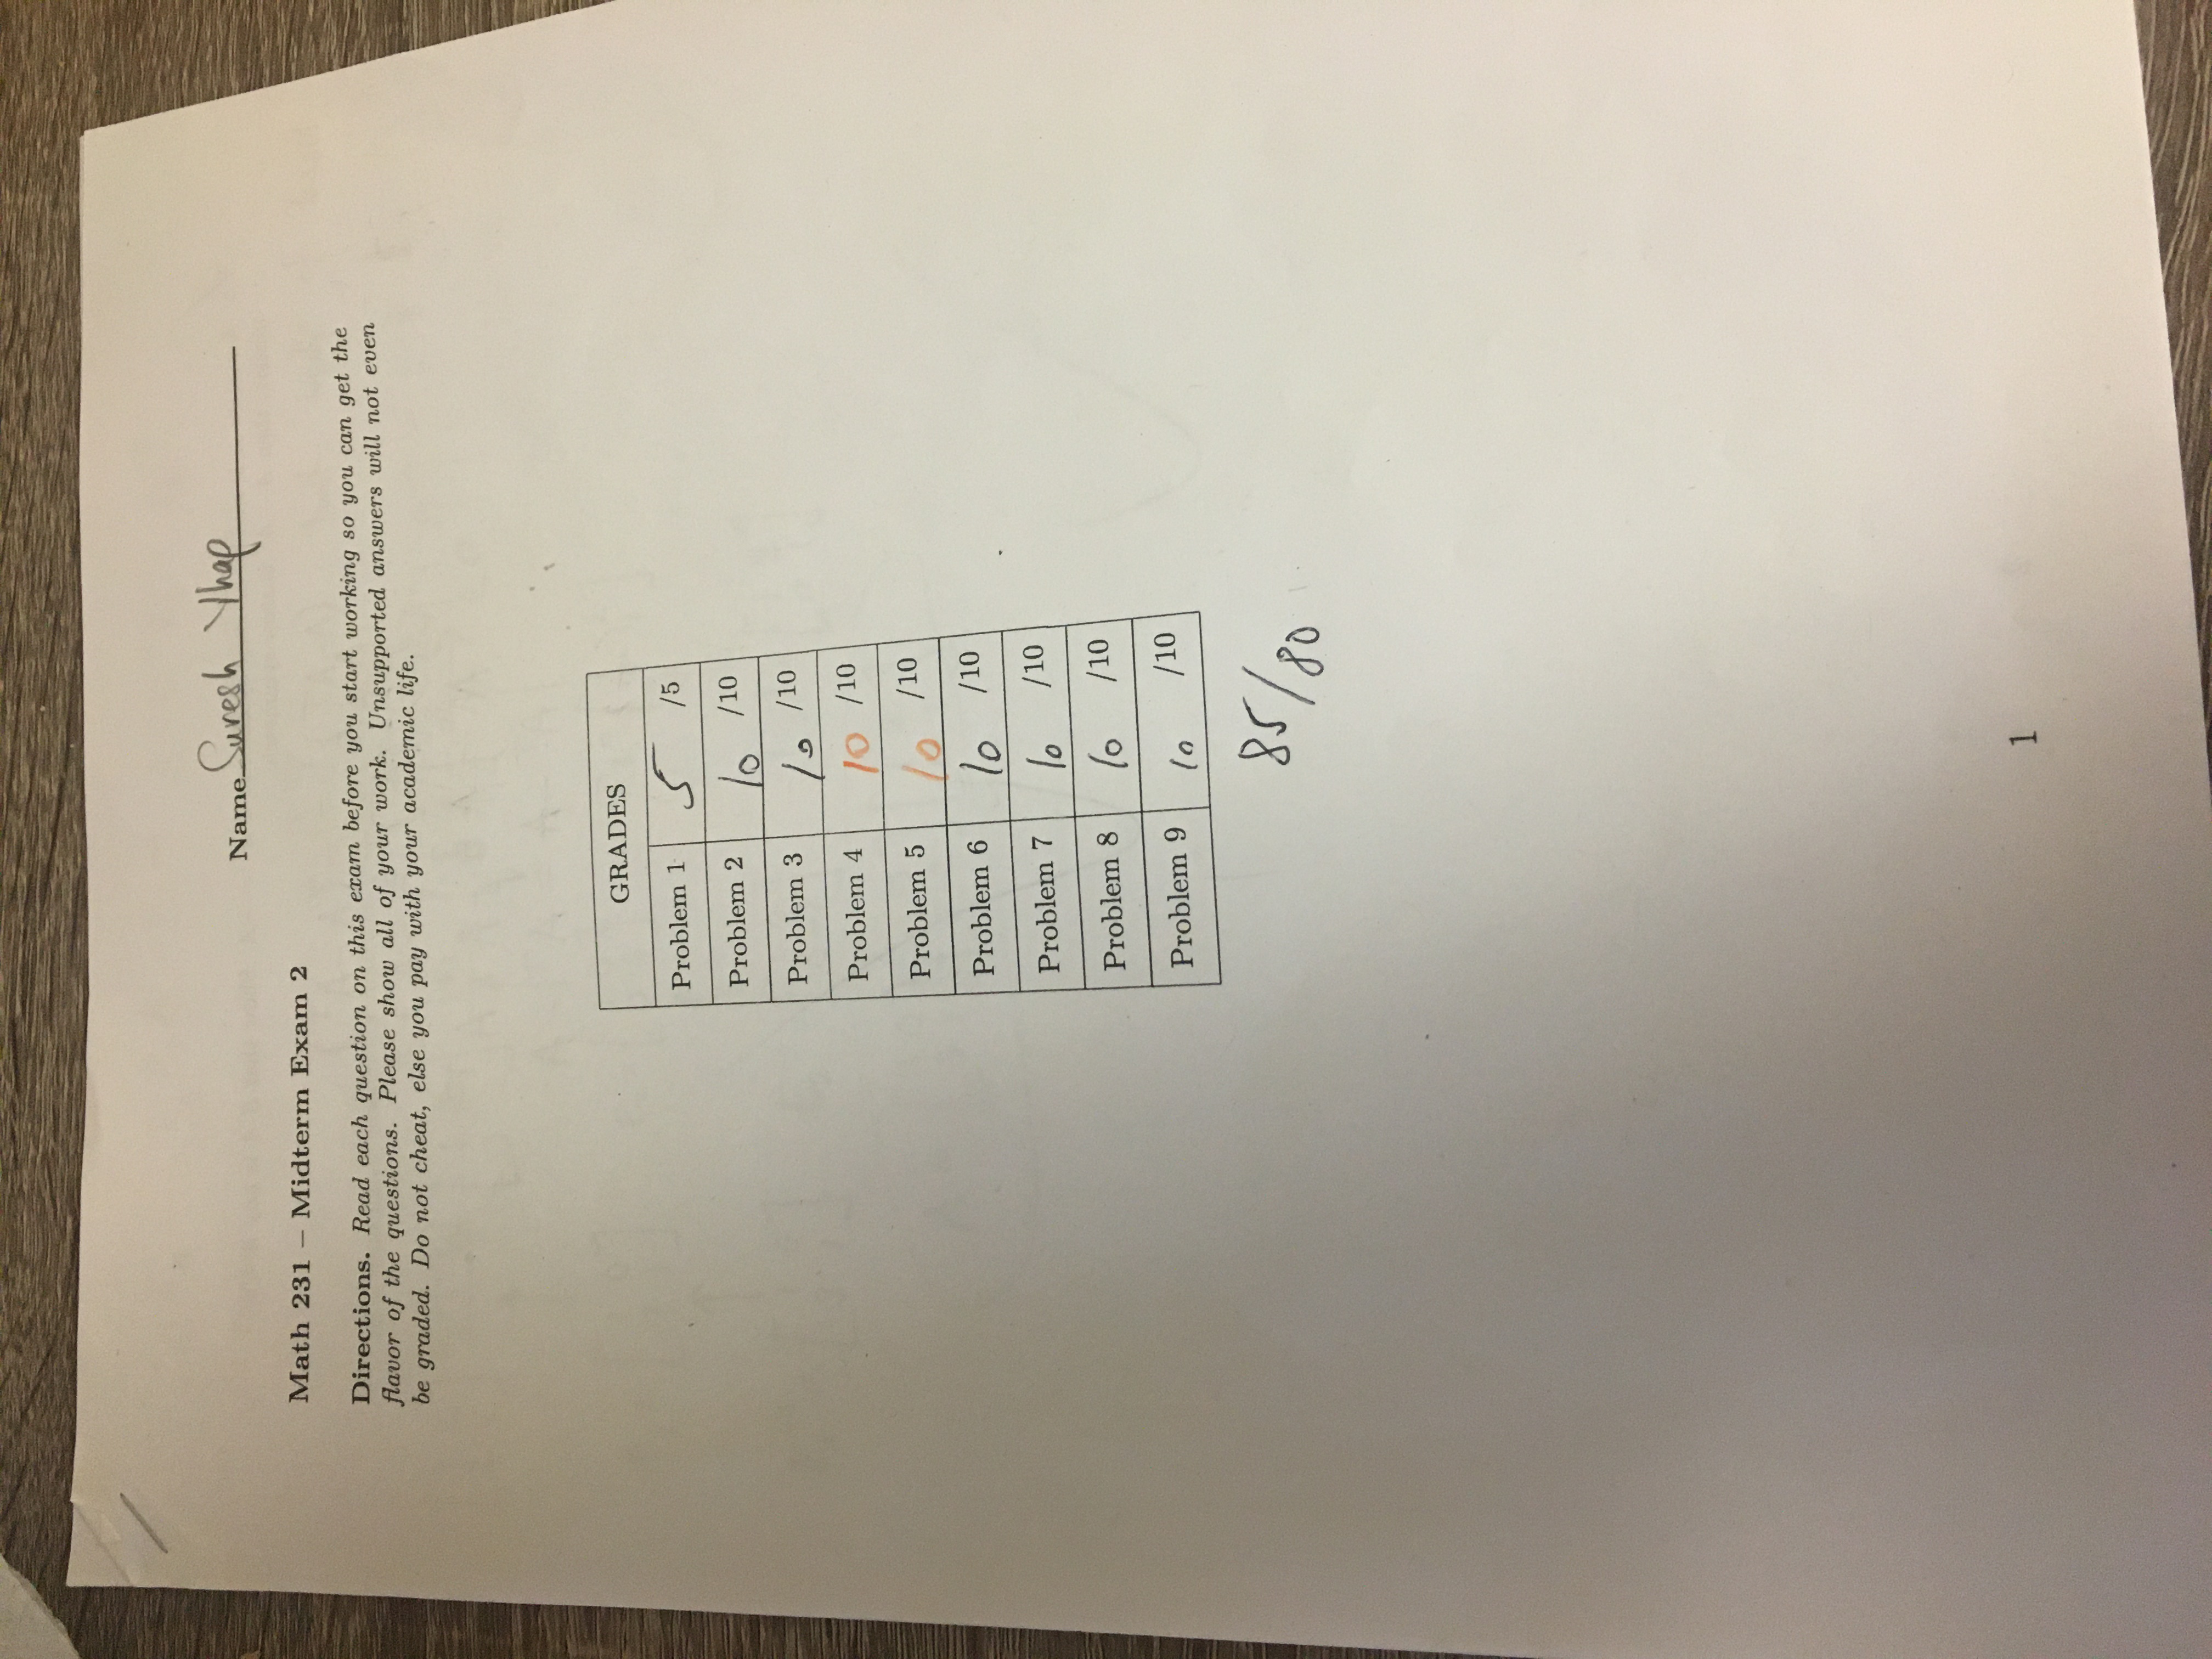 Name Suresh Yhap
Math 231 – Midterm Exam 2
Directions. Read each question on this exam before you start working so you can get the
flavor of the questions. Please show all of your work. Unsupported answers will not even
be graded. Do not cheat, else you pay with your academic life.
GRADES
Problem 1 5 /5
Problem 2 10 /10
Problem 3 10 /10
Problem 4 10 /10
Problem 5 10 /10
Problem 6 10 /10
Problem 7 10 /10
Problem 8 10 /10
Problem 9 10 /10
85/80
1